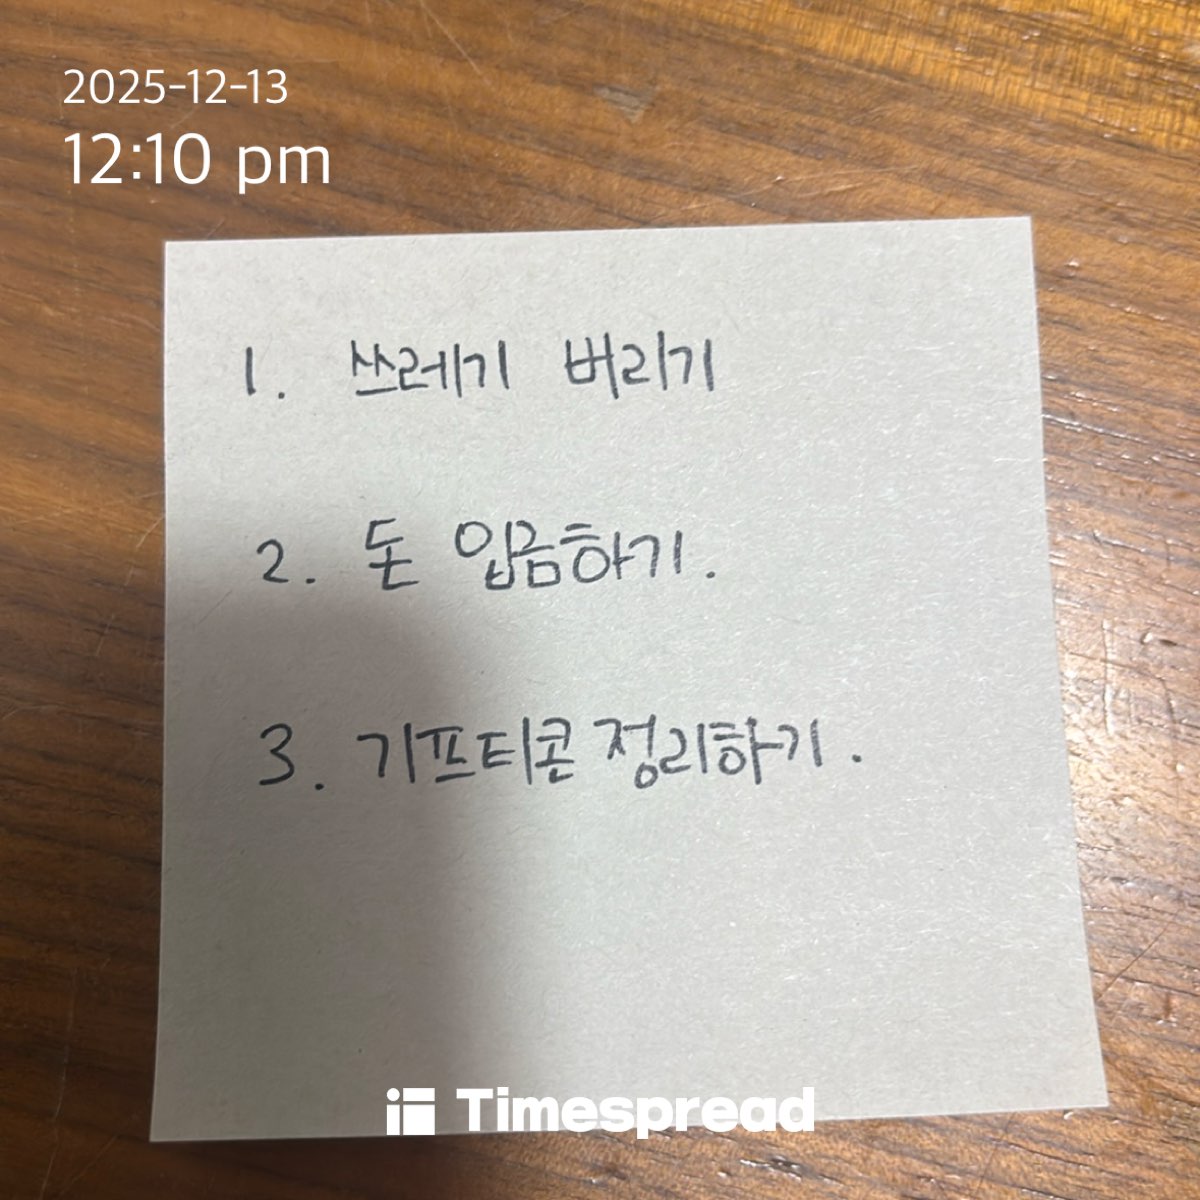 2025-12-13
12:10 pm
1. 쓰레기 버리기
2. 돈 입금하기.
3. 기프티콘 정리하기.
Timespread